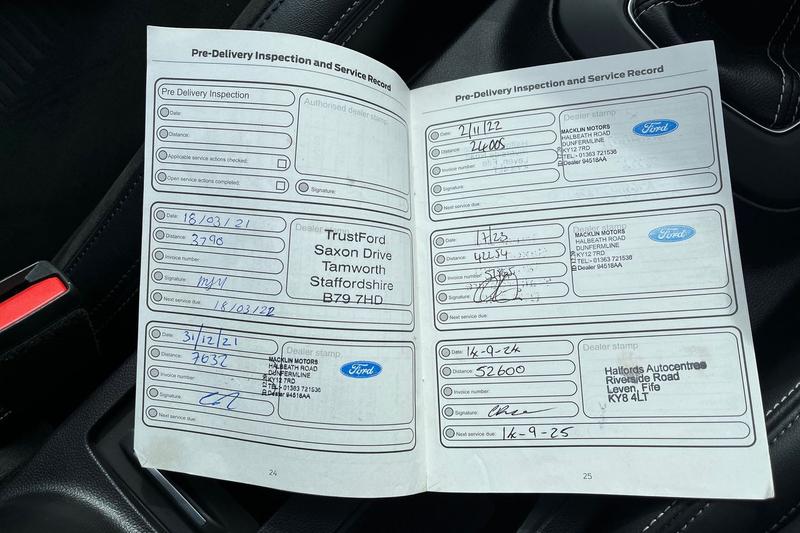 Pre-Delivery Inspection and Service Record
Pre Delivery Inspection
Date:
Distance:
Applicable service actions checked:
Open service actions completed:
Authorised dealer stamp
Signature:
Date: 18/03/21
Distance: 3790
Invoice number:
Signature:
Next service due: 18/03/22
Dealer stamp
TrustFord
Saxon Drive
Tamworth
Staffordshire
B79 7HD
Date: 31/12/21
Distance: 7632
Invoice number:
Signature:
Next service due:
Dealer stamp
MACKLIN MOTORS
HALBEATH ROAD
DUNFERMLINE
KY12 7RD
TEL:- 01383 721536
Dealer 94518AA
Ford
24
Pre-Delivery Inspection and Service Record
Date: 2/11/22
Distance: 24005
Invoice number:
Signature:
Next service due:
Dealer stamp
MACKLIN MOTORS
HALBEATH ROAD
DUNFERMLINE
KY12 7RD
TEL:- 01383 721536
Dealer 94518AA
Ford
Date:
Distance: 42254
Invoice number:
Signature:
Next service due:
Dealer stamp
MACKLIN MOTORS
HALBEATH ROAD
DUNFERMLINE
KY12 7RD
TEL:- 01383 721536
Dealer 94518AA
Ford
Date: 14-9-24
Distance: 52600
Invoice number:
Signature:
Next service due: 14-9-25
Dealer stamp
Halfords Autocentree
Riverside Road
Leven, Fife
KY8 4LT
25